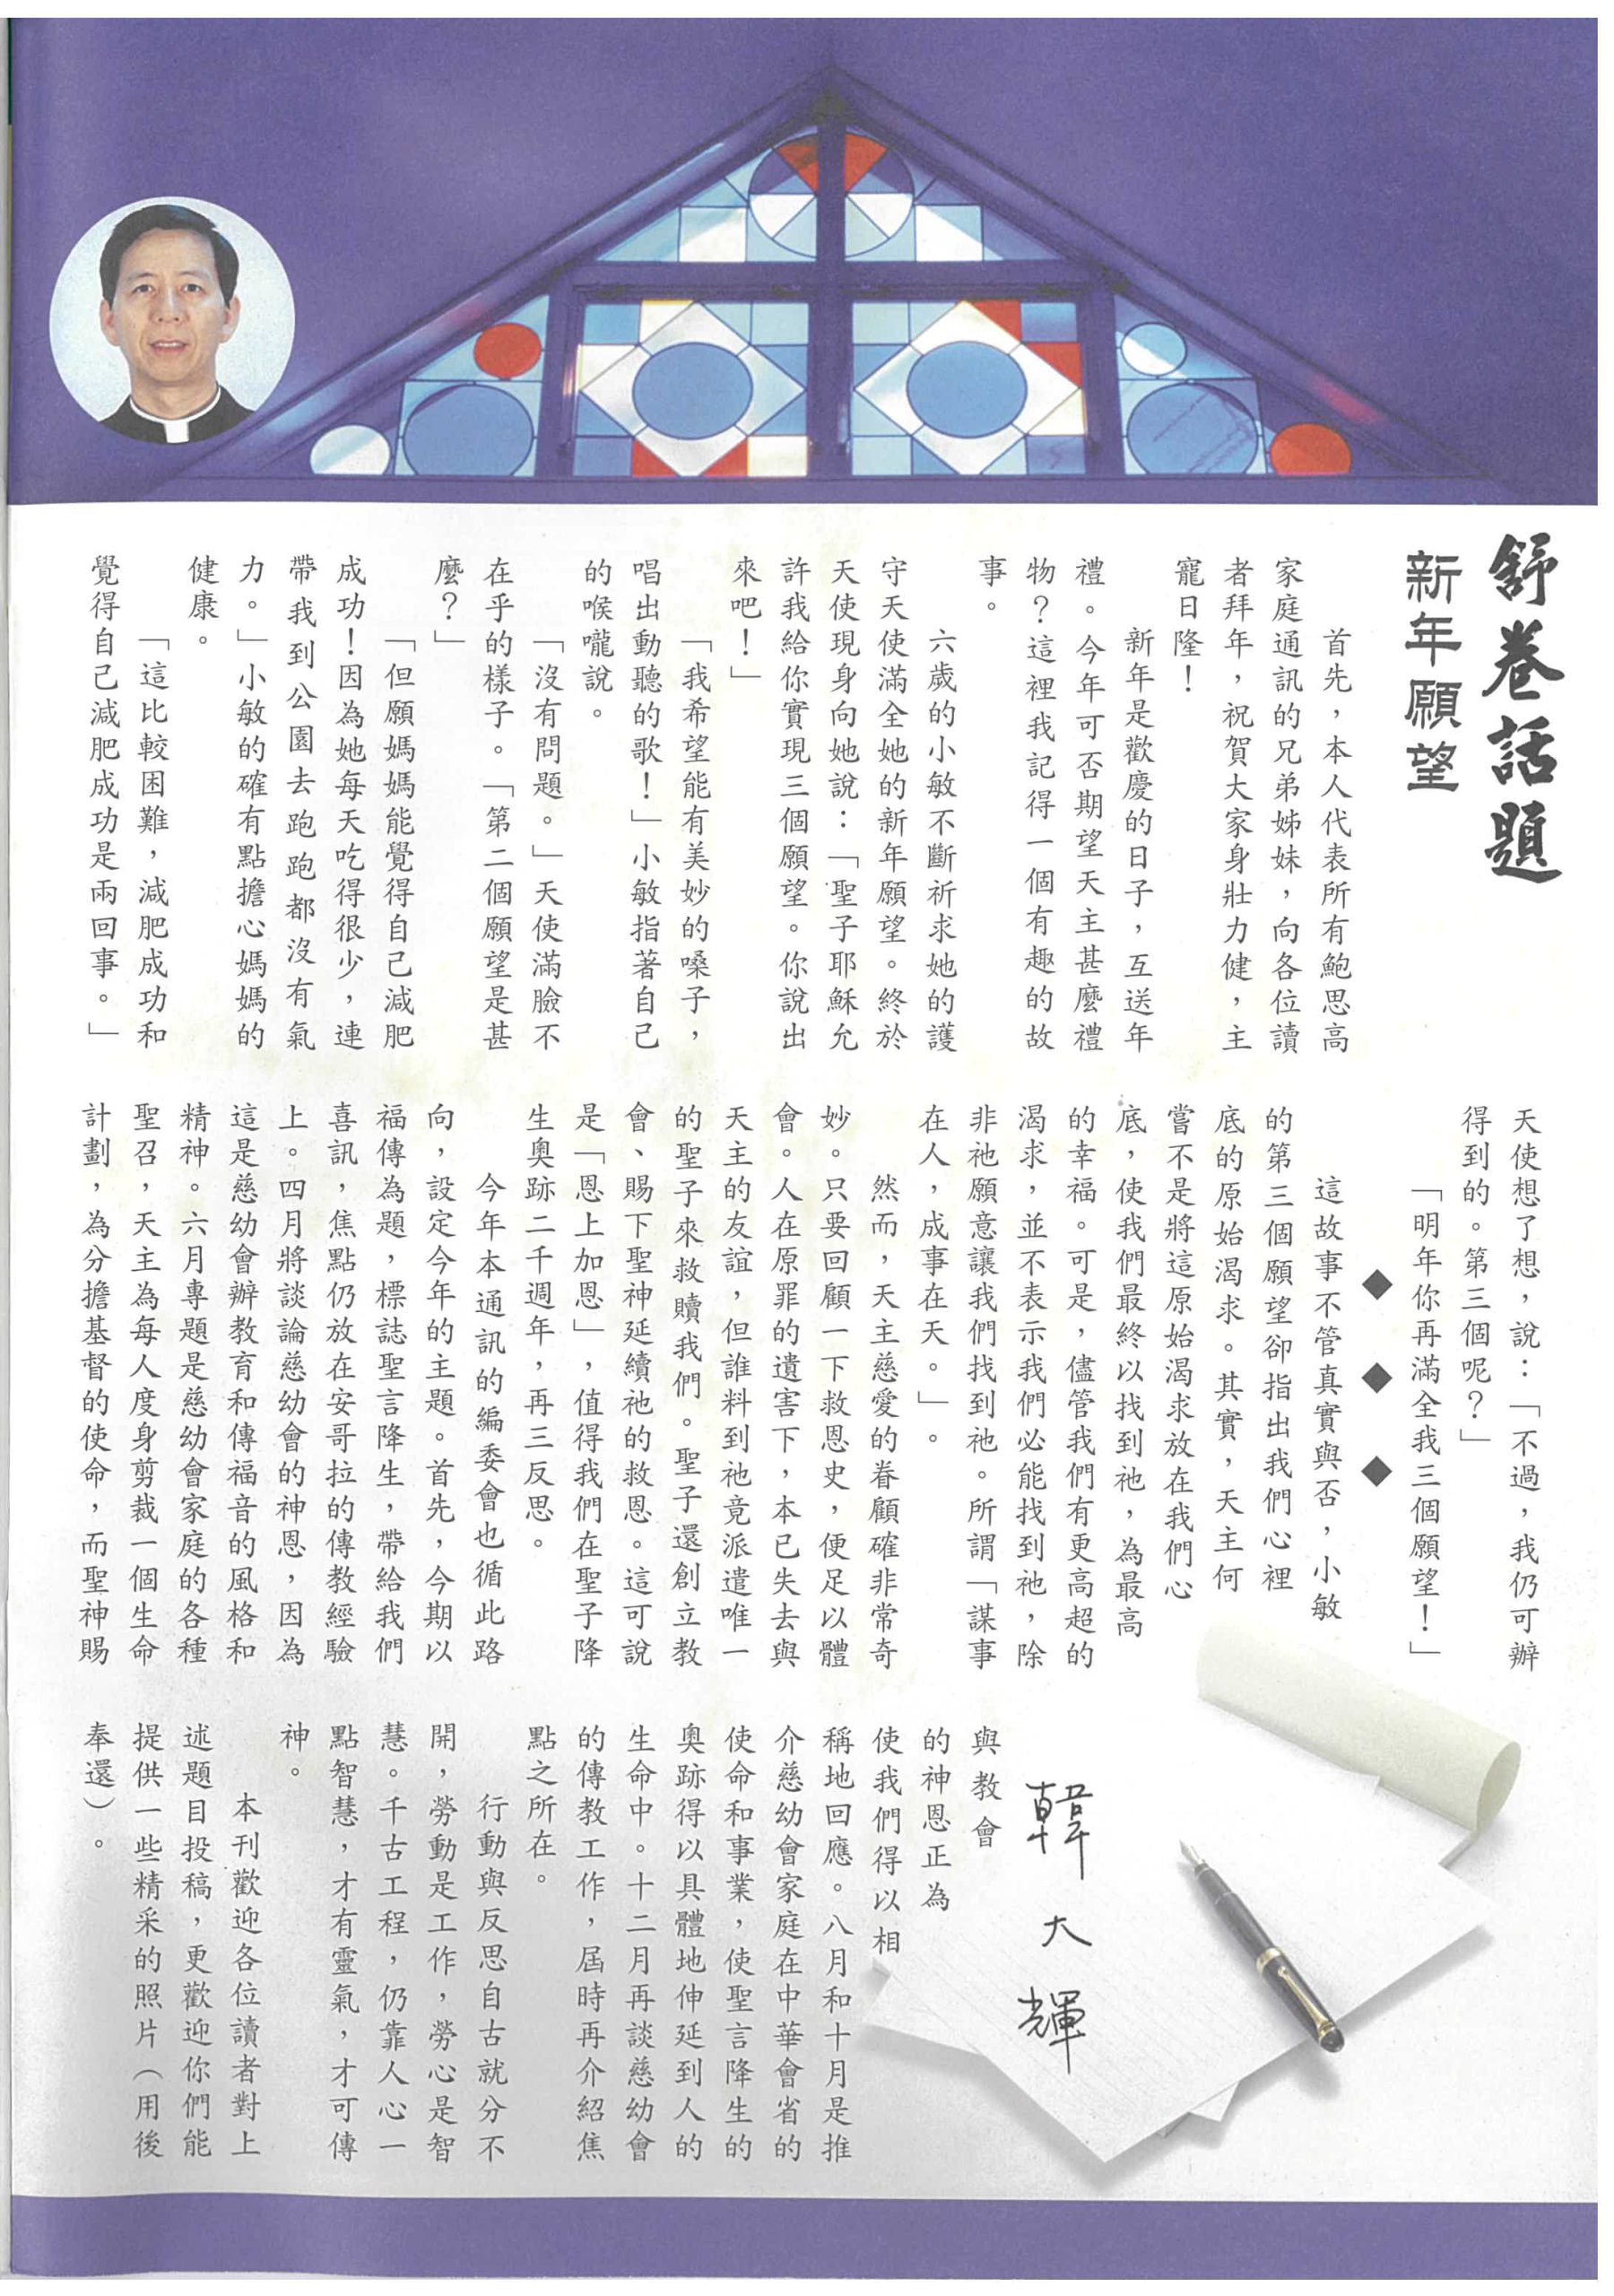 舒卷話題
新年願望
首先，本人代表所有鮑思高
家庭通訊的兄弟姊妹，向各位讀
者拜年，祝賀大家身壯力健，主
寵日隆！
新年是歡慶的日子，互送年
禮。今年可否期望天主甚麼禮
物？這裡我記得一個有趣的故
事。
六歲的小敏不斷祈求她的護
守天使滿全她的新年願望。終於
天使現身向她說：「聖子耶穌允
許我給你實現三個願望。你說出
來吧！」
「我希望能有美妙的嗓子，
唱出動聽的歌！」小敏指著自己
的喉嚨說。
「沒有問題。」天使滿臉不
在乎的樣子。「第二個願望是甚
麼？」
「但願媽媽能覺得自己減肥
成功！因為她每天吃得很少，連
帶我到公園去跑跑都沒有氣
力。」小敏的確有點擔心媽媽的
健康。
「這比較困難，減肥成功和
覺得自己減肥成功是兩回事。」
天使想了想，說：「不過，我仍可辦
得到的。第三個呢？」
「明年你再滿全我三個願望！」
◆ ◆ ◆
這故事不管真實與否，小敏
的第三個願望卻指出我們心裡
底的原始渴求。其實，天主何
嘗不是將這原始渴求放在我們心
底，使我們最終以找到祂，為最高
的幸福。可是，儘管我們有更高超的
渴求，並不表示我們必能找到祂，除
非祂願意讓我們找到祂。所謂「謀事
在人，成事在天。」。
然而，天主慈愛的眷顧確非常奇
妙。只要回顧一下救恩史，便足以體
會。人在原罪的遺害下，本已失去與
天主的友誼，但誰料到祂竟派遣唯一
的聖子來救贖我們。聖子還創立教
會、賜下聖神延續祂的救恩。這可說
是「恩上加恩」，值得我們在聖子降
生奧跡二千週年，再三反思。
今年本通訊的編委會也循此路
向，設定今年的主題。首先，今期以
福傳為題，標誌聖言降生，帶給我們
喜訊，焦點仍放在安哥拉的傳教經驗
上。四月將談論慈幼會的神恩，因為
這是慈幼會辦教育和傳福音的風格和
精神。六月專題是慈幼會家庭的各種
聖召，天主為每人度身剪裁一個生命
計劃，為分擔基督的使命，而聖神賜
與教會
的神恩正為
使我們得以相
稱地回應。八月和十月是推
介慈幼會家庭在中華會省的
使命和事業，使聖言降生的
奧跡得以具體地伸延到人的
生命中。十二月再談慈幼會
的傳教工作，屆時再介紹焦
點之所在。
行動與反思自古就分不
開，勞動是工作，勞心是智
慧。千古工程，仍靠人心一
點智慧，才有靈氣，才可傳
神。
本刊歡迎各位讀者對上
述題目投稿，更歡迎你們能
提供一些精采的照片（用後
奉還）。
韓大輝